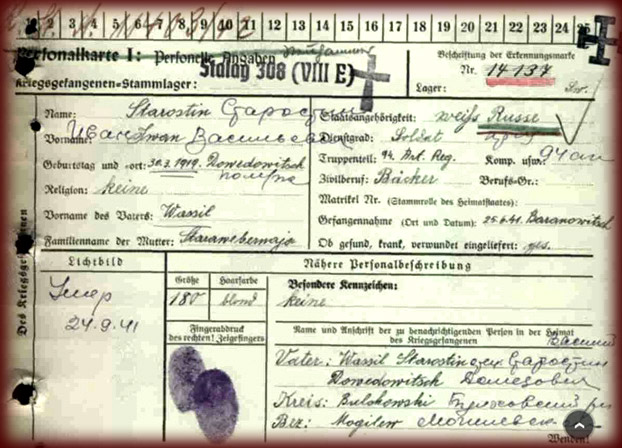 1 2 3 4 5 6 7 8 9 10 11 12 13 14 15 16 17 18 19 20 21 22 23 24 25
Personalkarte I: Personelle Angaben
Kriegsgefangenen-Stammlager: Stalag 308 (VIII E)
Beschriftung der Erkennungsmarke
Nr. 14137
Lager:
Des Kriegsgefangenen
Name: Starostin Старостин
Vorname: Иван Iwan Василь
Geburtstag und -ort: 30.3.1919. Dowedowitsch
Religion: keine
Vorname des Vaters: Wassil
Familienname der Mutter:
Staatsangehörigkeit: weiß Russe
Dienstgrad: Soldat
Truppenteil: 94. Art. Reg. Komp. usw.: 94 ап
Zivilberuf: Bäcker Berufs-Gr.:
Matrikel Nr. (Stammrolle des Heimatstaates):
Gefangennahme (Ort und Datum): 25.6.41. Baranowitsch
Ob gesund, krank, verwundet eingeliefert: ges.
Lichtbild
Умер
24.9.41
Nähere Personalbeschreibung
Größe Haarfarbe
180 blond
Besondere Kennzeichen:
keine
Fingerabdruck
des rechten! Zeigefingers
Name und Anschrift der zu benachrichtigenden Person in der Heimat
des Kriegsgefangenen
Vater: Wassil Starostin отец Старостин
Dowedowitsch
Kreis:
Bez: Mogilew
Wenden!